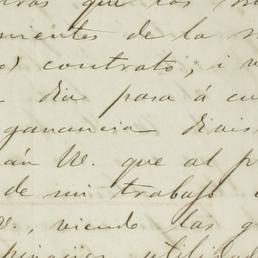 que los
mientes de la
contrato; i
dia pasa á cu
ganancia divis
án W. que al p
de mi trabajo
W., viendo las g
pingües utilidad